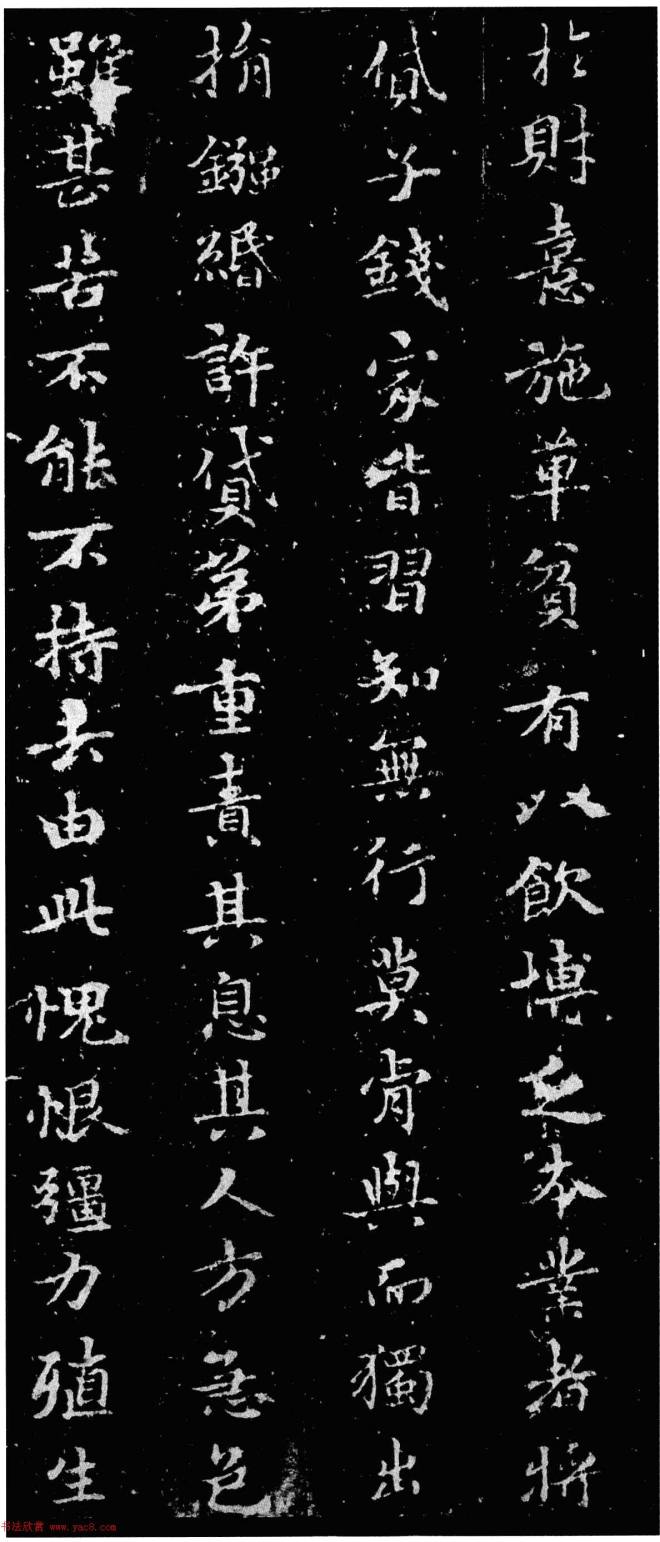 於財憙施單貧有以飲博乏本業者將
貸子錢家皆習知無行莫肯與而獨出
捐鏹緡許貸苐重責其息其人方急色
雖甚苦不能不持去由此愧恨彊力殖生
书法欣赏 www.yac8.com